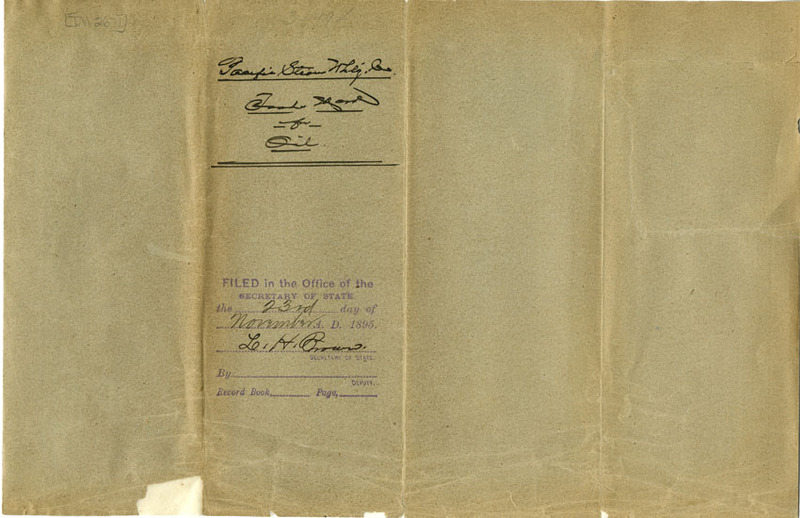 Pacific Steam Whlg. Co.
Trade Mark
for
Oil.
FILED in the Office of the
SECRETARY OF STATE
the 23rd day of
November A. D. 1895.
L. H. Brown.
SECRETARY OF STATE.
By
DEPUTY.
Record Book, Page,